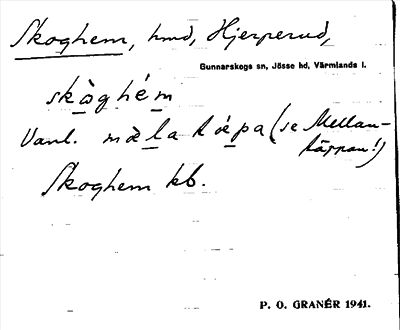 Skoghem, hmd, Hjerperud,
Gunnarskogs sn, Jösse hd, Värmlands l.
skòghém
Vanl. mèla tǿpa (se Mellan-
täppan!)
Skoghem kb.
P. O. GRANÉR 1941.